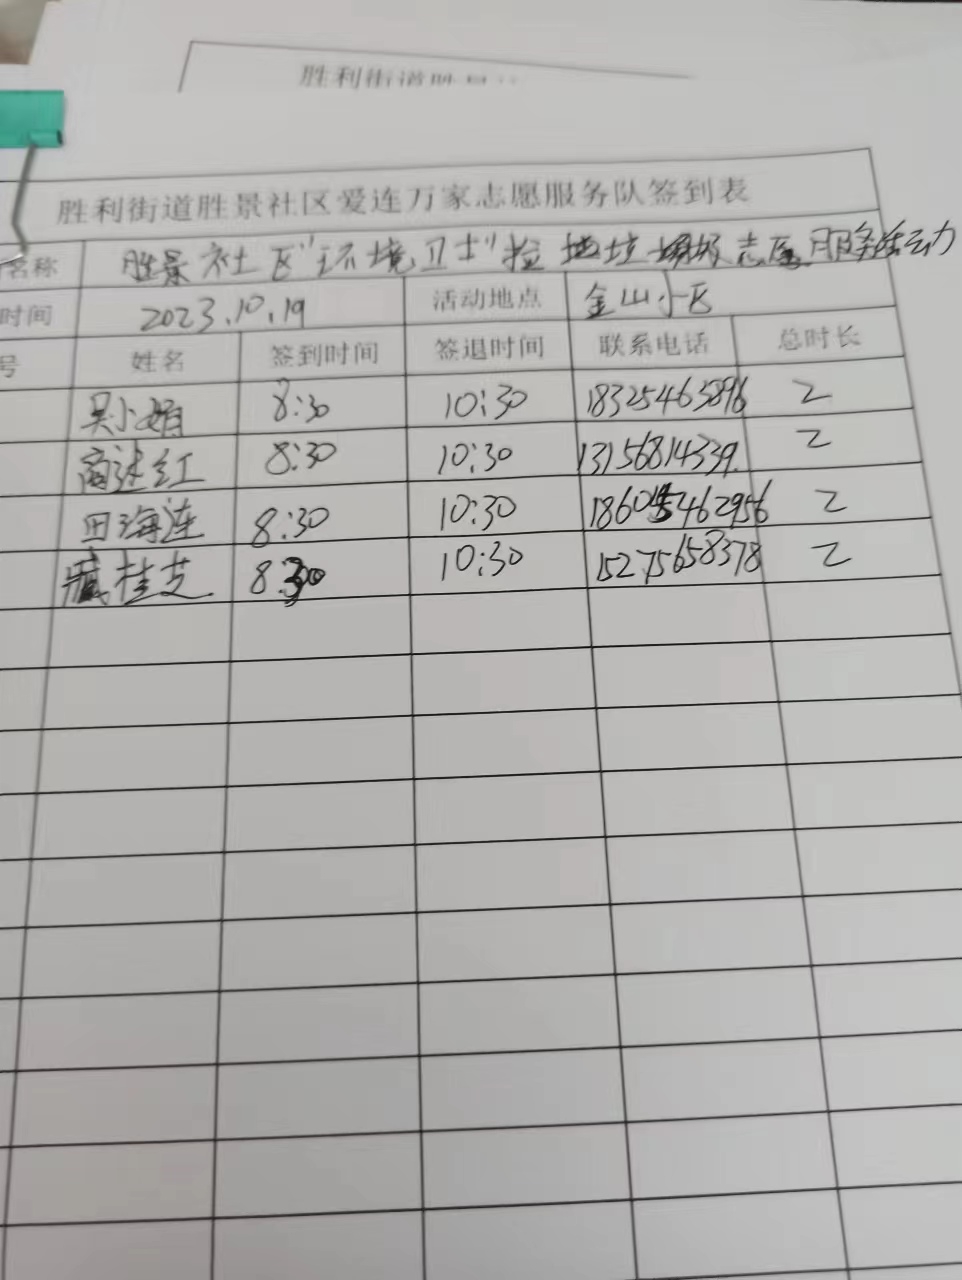 胜利街道胜景社区爱连万家志愿服务队签到表
名称 胜景社区"环境卫士"捡 垃圾 志愿服务活动
时间 2023.10.19 活动地点 金山小区
号 姓名 签到时间 签退时间 联系电话 总时长
吴小娟 8:30 10:30 18325463896 2
商述红 8:30 10:30 13156814339 2
田海连 8:30 10:30 2
臧桂芝 8:30 10:30 15275658378 2